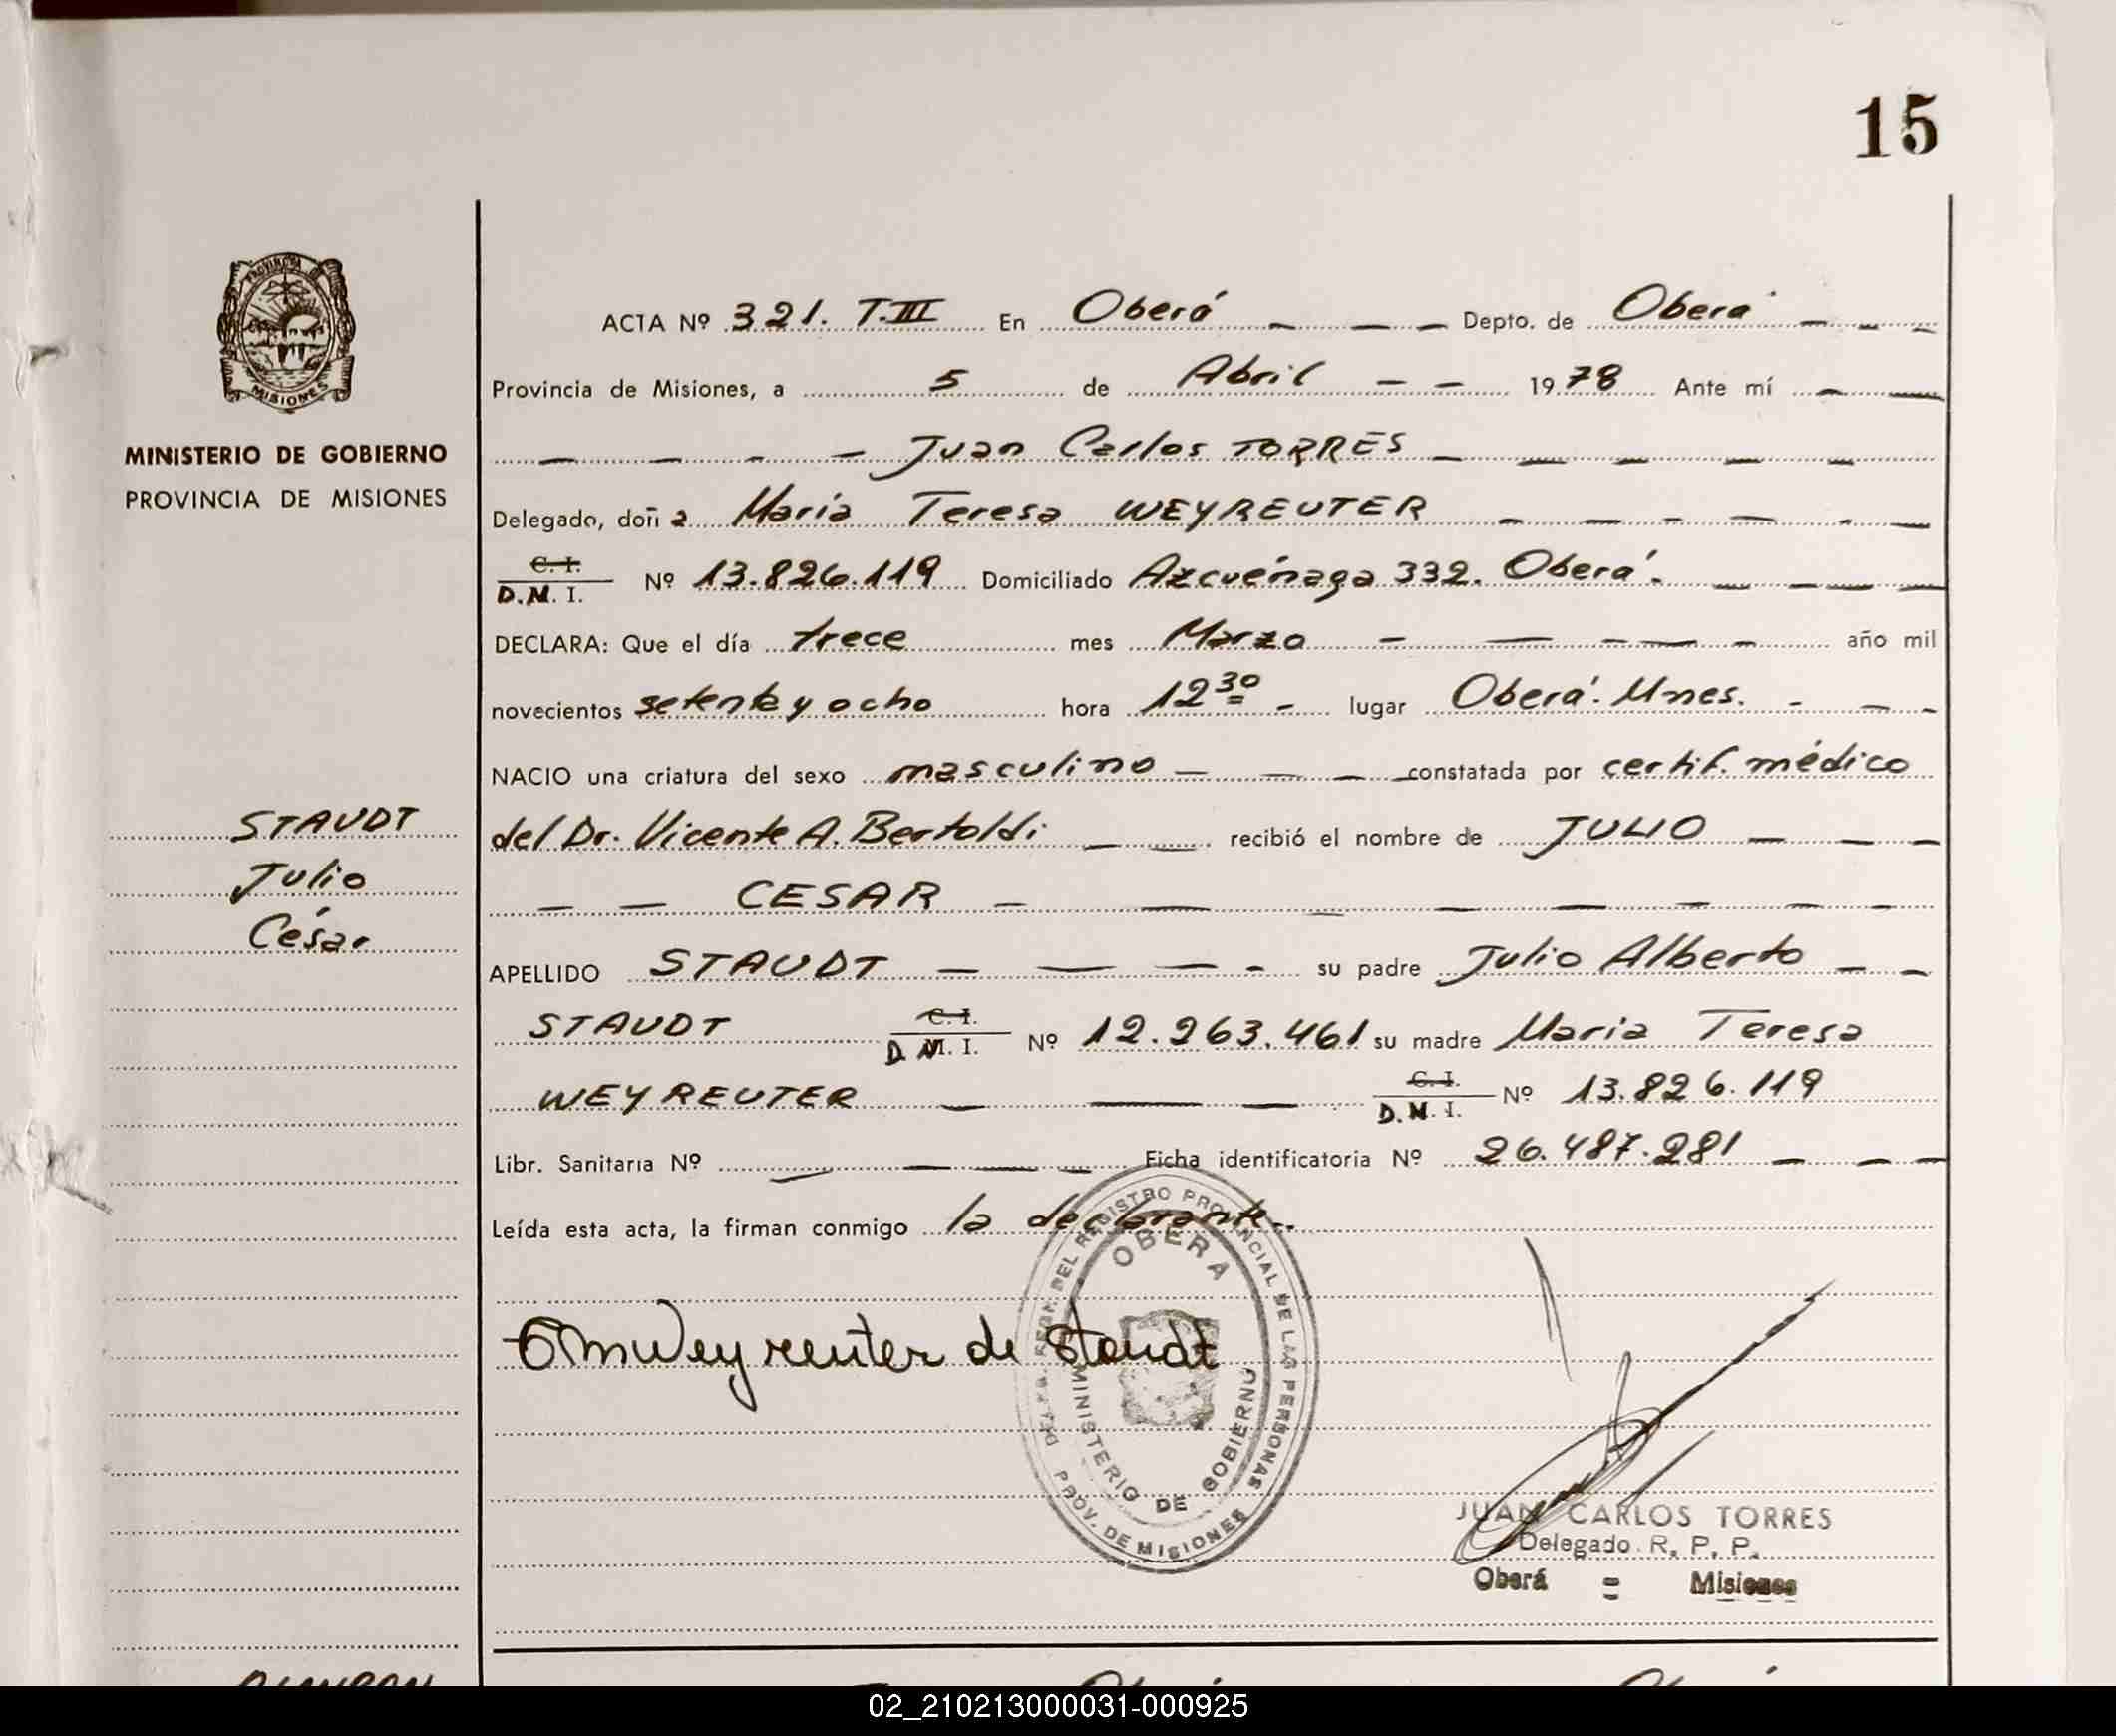 15
PROVINCIA
MISIONES
MINISTERIO DE GOBIERNO
PROVINCIA DE MISIONES
STAUDT
Julio
César
ACTA Nº 321. T.III En Oberá Depto. de Oberá
Provincia de Misiones, a 5 de Abril 1978 Ante mí
Juan Carlos TORRES
Delegado, doña María Teresa WEYREUTER
C. I.
D.N. I. Nº 13.826.119 Domiciliado Azcuénaga 332. Oberá.
DECLARA: Que el día trece mes Marzo año mil
novecientos setenta y ocho hora 12 30 lugar Oberá. Mnes.
NACIO una criatura del sexo masculino constatada por certif. médico
del Dr. Vicente A. Bertoldi recibió el nombre de JULIO
CESAR
APELLIDO STAUDT su padre Julio Alberto
STAUDT C. I. D. N. I. Nº 12.263.461 su madre Maria Teresa
WEYREUTER C. I. D. N. I. Nº 13.826.119
Libr. Sanitaria Nº Ficha identificatoria Nº 26.487.281
Leída esta acta, la firman conmigo la declarante.
Weyreuter de Staudt
DEL REGISTRO PROVINCIAL DE LAS PERSONAS
OBERA
MINISTERIO DE GOBIERNO
PROV. DE MISIONES
JUAN CARLOS TORRES
Delegado R. P. P.
Oberá = Misiones
02_210213000031-000925